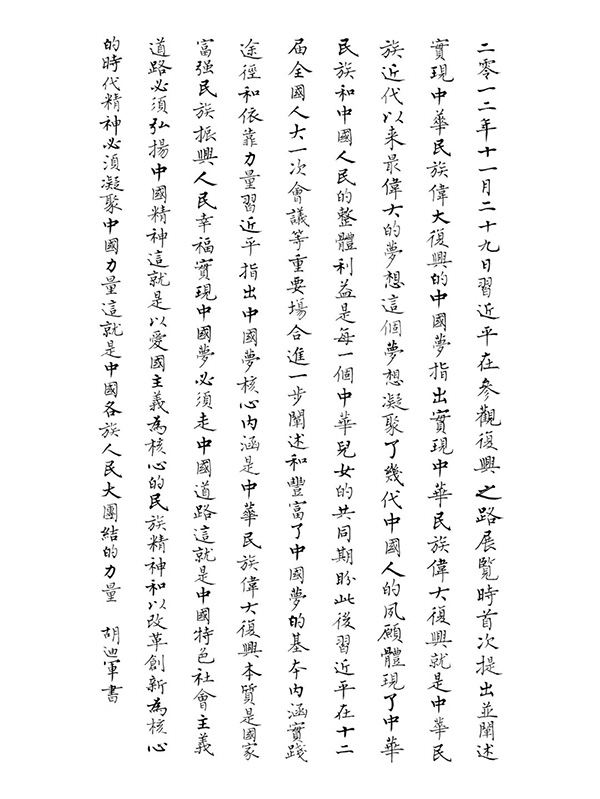 二零一二年十一月二十九日習近平在參觀復興之路展覽時首次提出並闡述
實現中華民族偉大復興的中國夢指出實現中華民族偉大復興就是中華民
族近代以来最偉大的夢想這個夢想凝聚了幾代中國人的夙願體現了中華
民族和中國人民的整體利益是每一個中華兒女的共同期盼此後習近平在十二
届全國人大一次會議等重要場合進一步闡述和豐富了中國夢的基本内涵實踐
途徑和依靠力量習近平指出中國夢核心内涵是中華民族偉大復興本質是國家
富强民族振興人民幸福實現中國夢必須走中國道路這就是中國特色社會主義
道路必須弘揚中國精神這就是以愛國主義為核心的民族精神和以改革創新為核心
的時代精神必須凝聚中國力量這就是中國各族人民大團結的力量 胡迪軍書